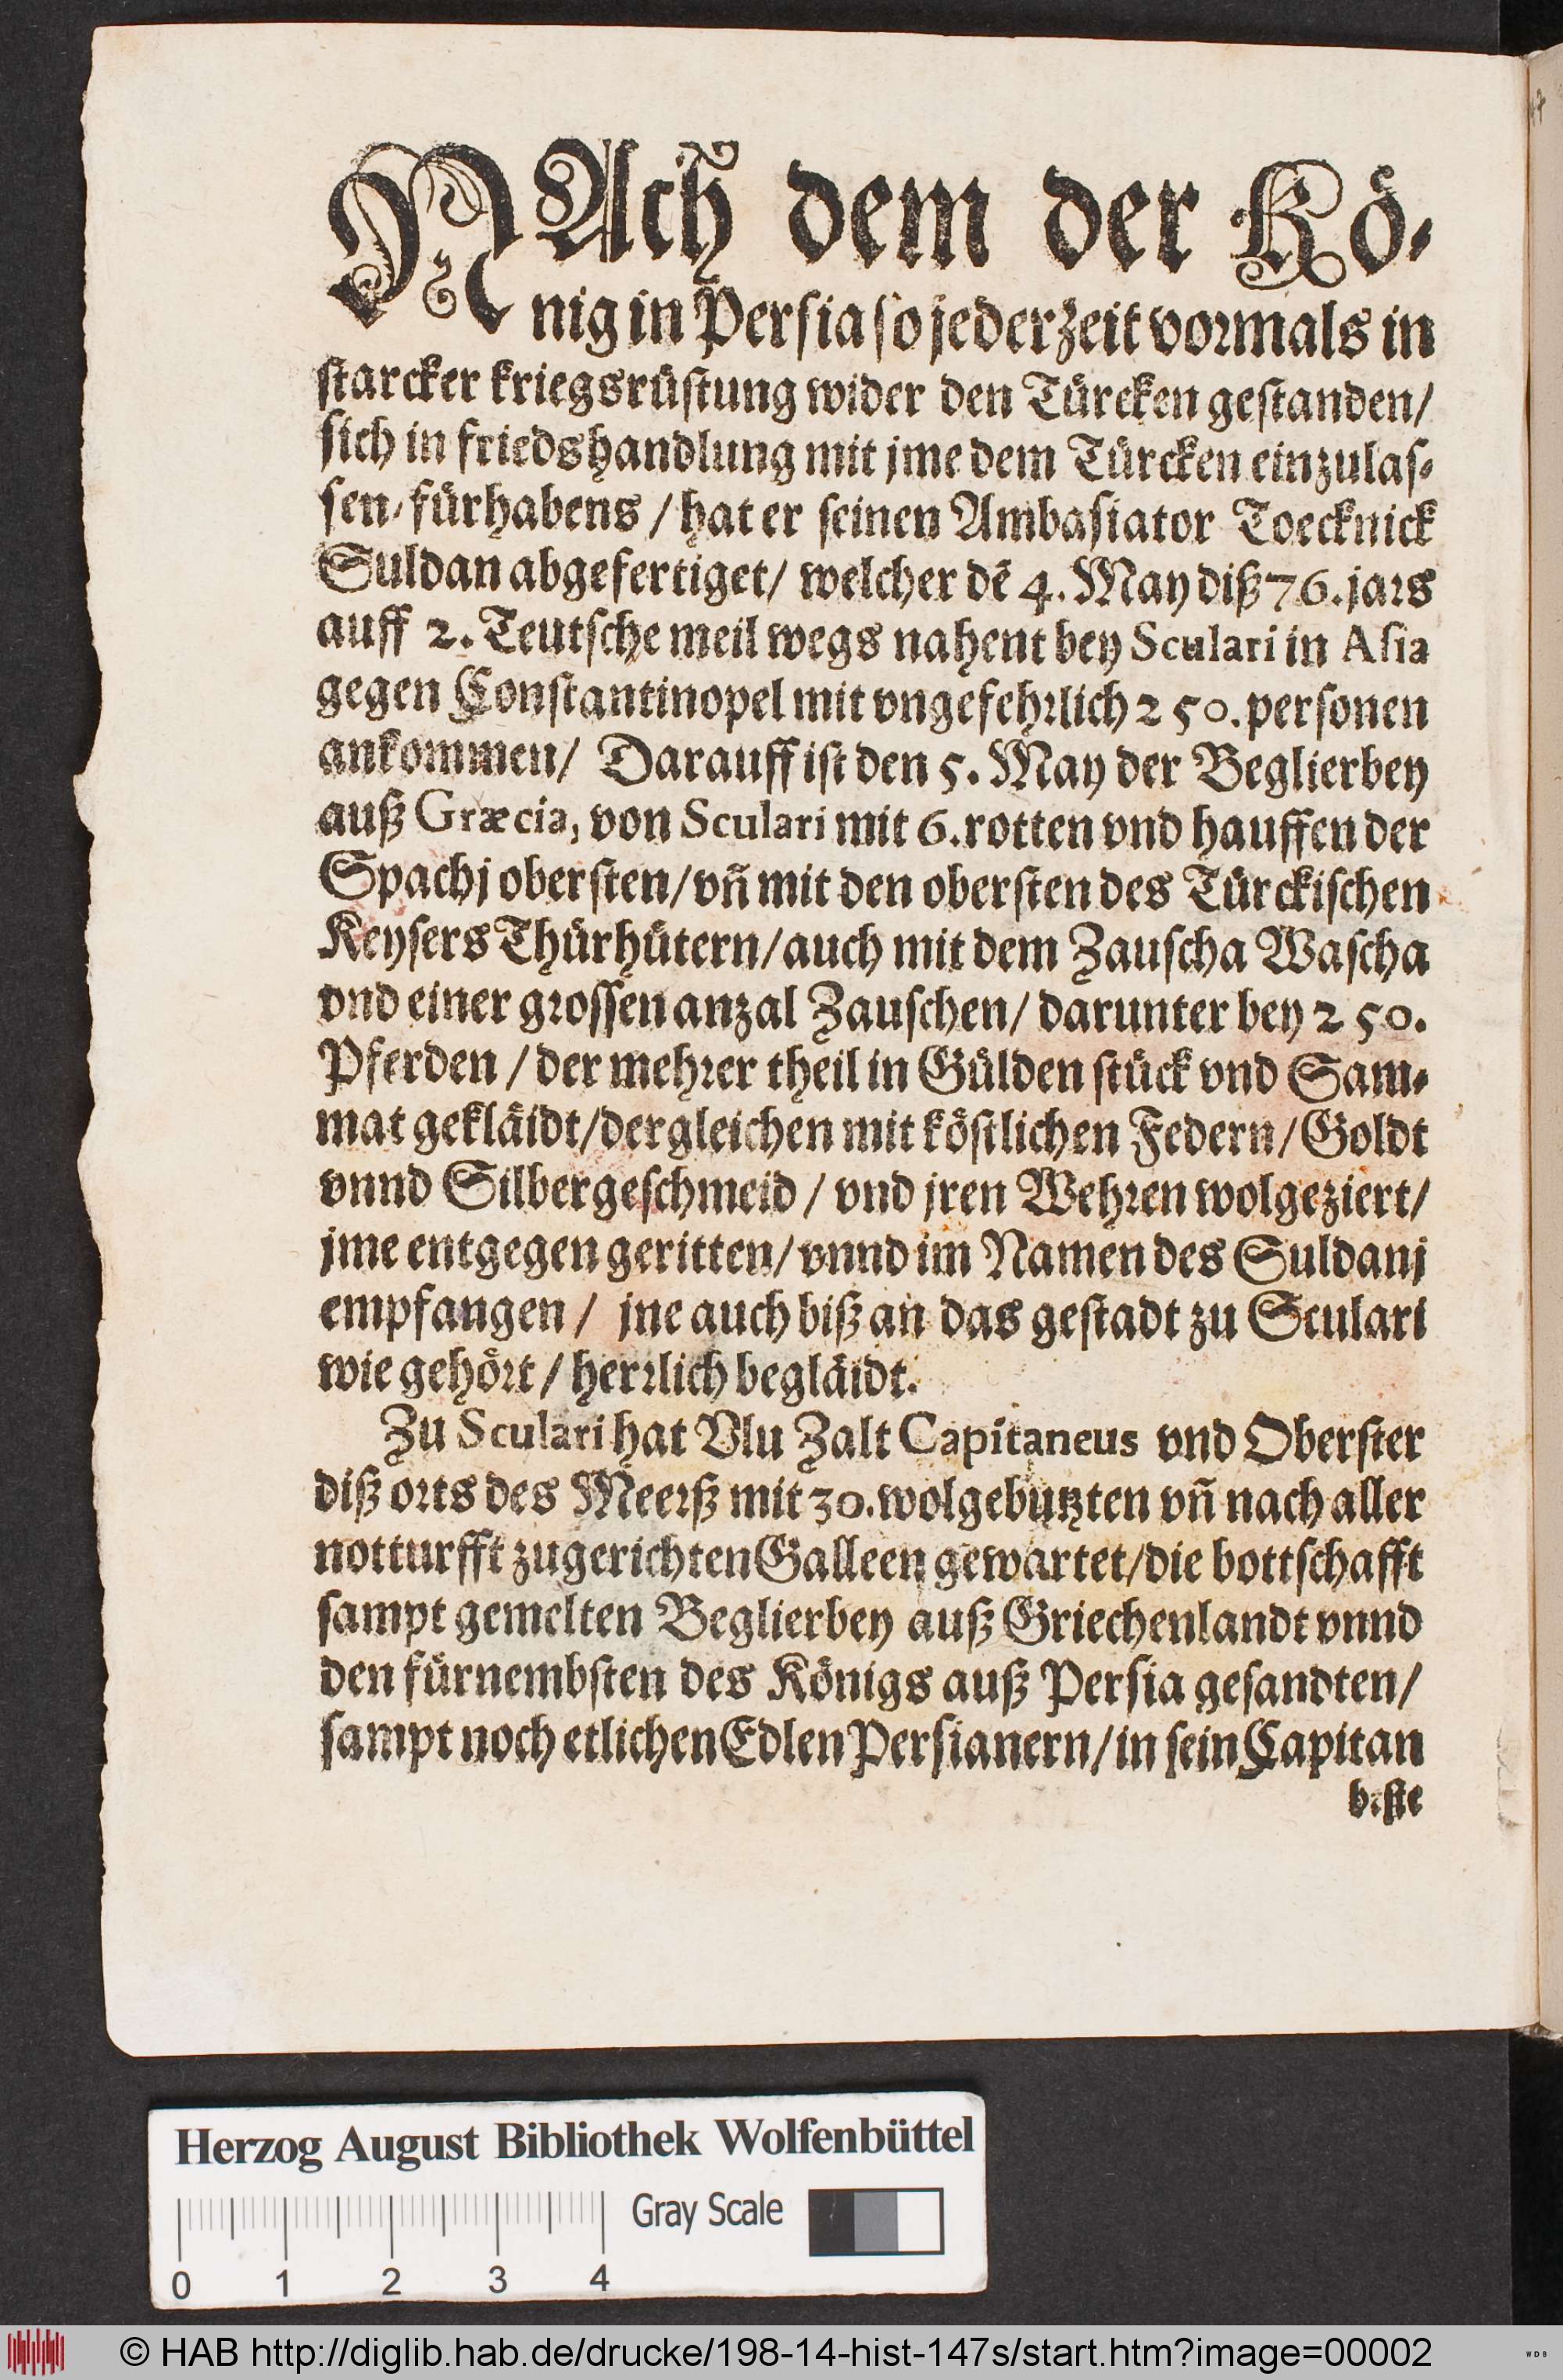 NAch dem der Kö-
nig in Persia so jederzeit vormals in
starcker kriegsrüstung wider den Türcken gestanden/
sich in friedshandlung mit jme dem Türcken einzulas-
sen/ fürhabens / hat er seinen Ambasiator Toecknick
Suldan abgefertiget/ welcher dē 4. May diß 76. jars
auff 2. Teutsche meil wegs nahent bey Sculari in Asia
gegen Constantinopel mit vngefehrlich 250. personen
ankommen/ Darauff ist den 5. May der Beglierbey
auß Græcia, von Sculari mit 6. rotten vnd hauffen der
Spachj obersten/ vñ mit den obersten des Türckischen
Keysers Thürhütern/ auch mit dem Zauscha Wascha
vnd einer grossen anzal Zauschen/ darunter bey 250.
Pferden / der mehrer theil in Gülden stück vnd Sam-
mat gekläidt/ dergleichen mit köstlichen Federn/ Goldt
vnnd Silbergeschmeid / vnd jren Wehren wolgeziert/
jme entgegen geritten/ vnnd im Namen des Suldanj
empfangen / jne auch biß an das gestadt zu Sculari
wie gehört / herrlich begläidt.
Zu Sculari hat Vlu Zalt Capitaneus vnd Oberster
diß orts des Meerß mit 30. wolgebutzten vñ nach aller
notturfft zugerichten Galleen gewartet/ die bottschafft
sampt gemelten Beglierbey auß Griechenlandt vnnd
den fürnembsten des Königs auß Persia gesandten/
sampt noch etlichen Edlen Persianern/ in sein Capitan
Herzog August Bibliothek Wolfenbüttel
Gray Scale
0 1 2 3 4
© HAB http://diglib.hab.de/drucke/198-14-hist-147s/start.htm?image=00002
WDB